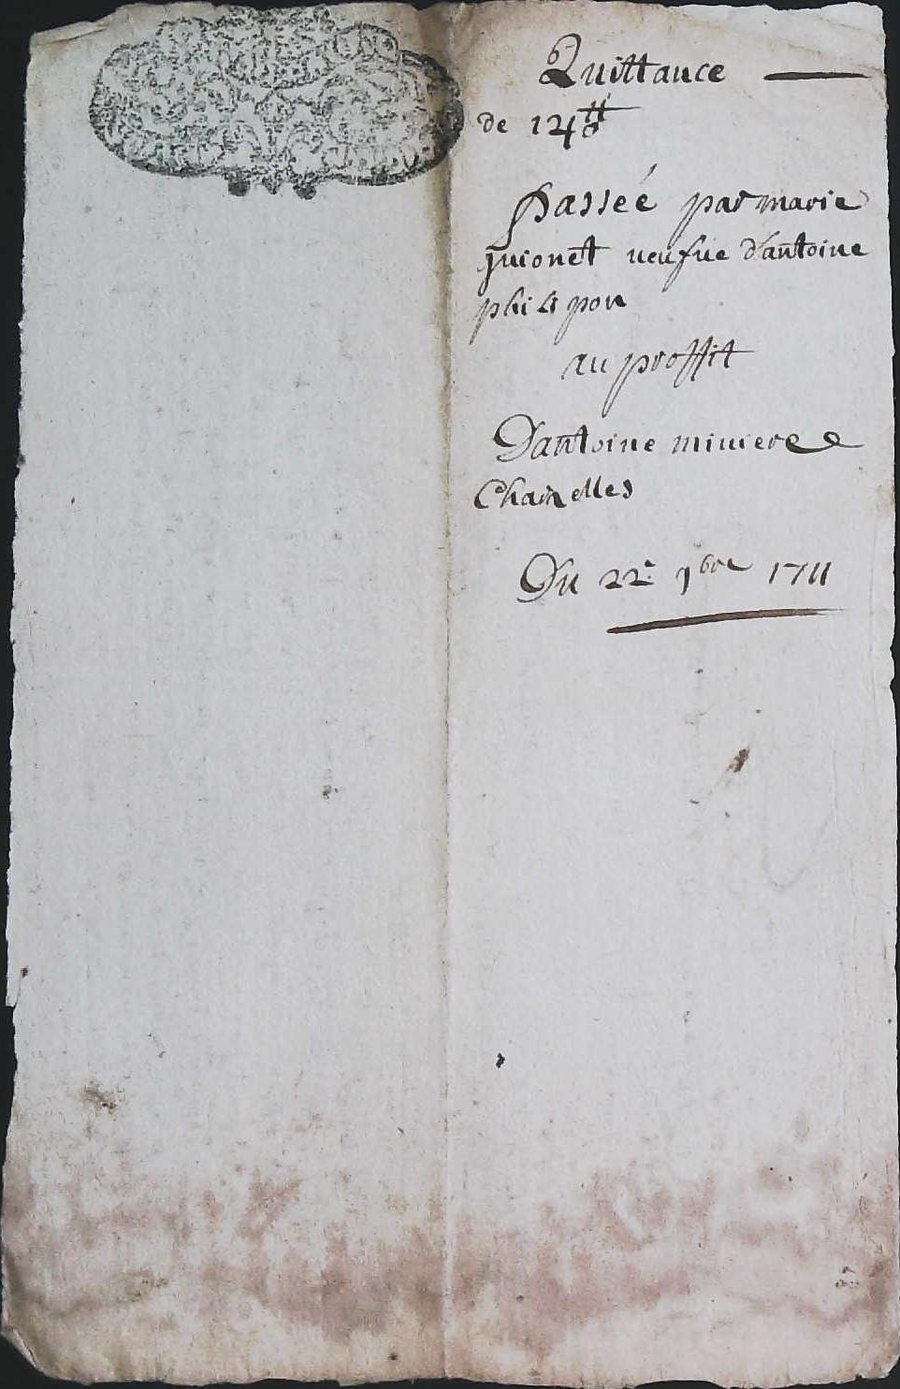 Quittance
de 124 ₶
Passée par marie
guionet veufve d'antoine
philipon
au proffit
D'antoine miviere
Chazelles
Du 22e 9bre 1711